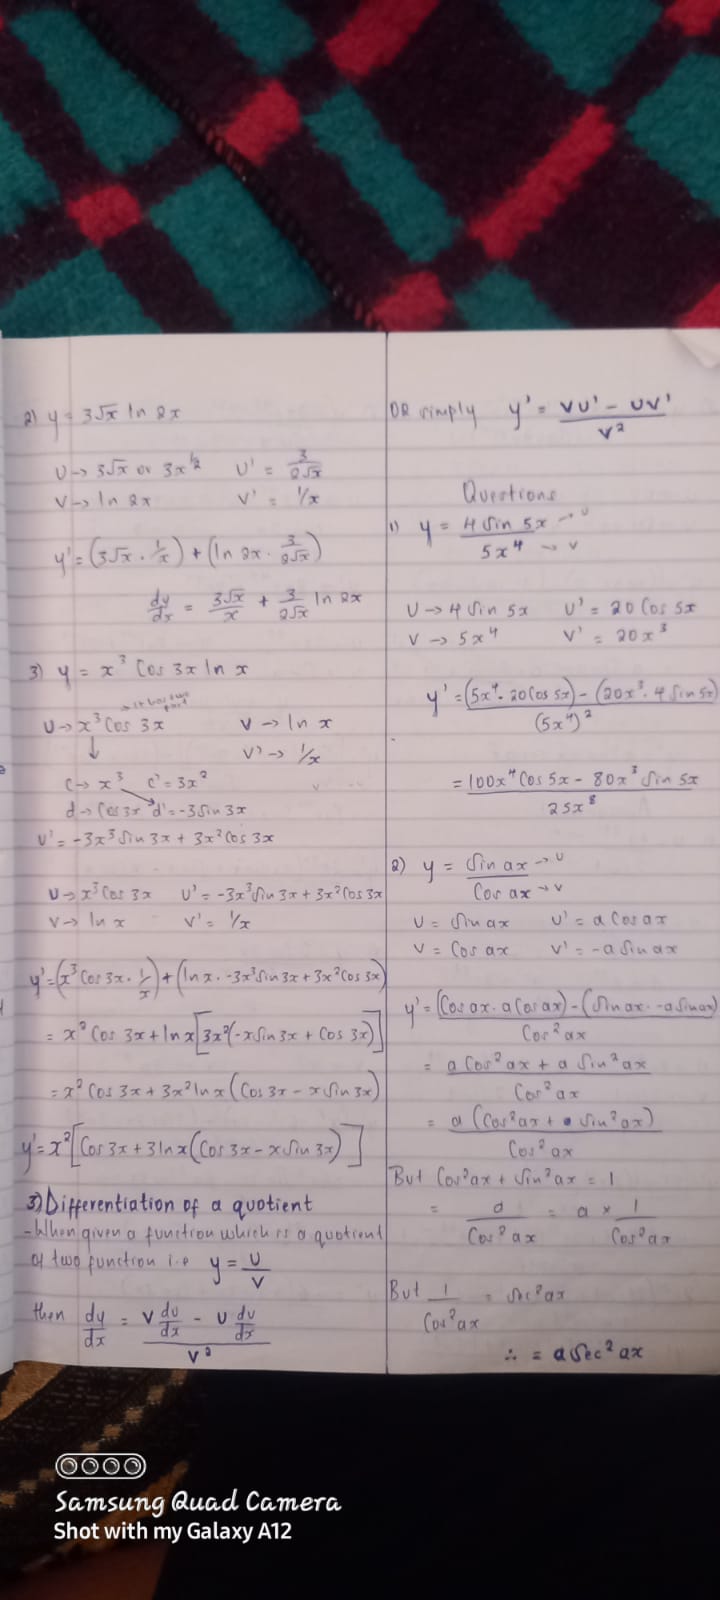 2) y = 3√x ln 2x
U → 3√x or 3x^1/2   U' = 3/2√x
V → ln 2x   V' = 1/x
y' = (3√x · 1/x) + (ln 2x · 3/2√x)
dy/dx = 3√x/x + 3/2√x ln 2x
3) y = x³ Cos 3x ln x
→ it has two part
U → x³ Cos 3x   V → ln x
↓   V' → 1/x
C → x³   C' = 3x²
d → Cos 3x   d' = -3 Sin 3x
U' = -3x³ Sin 3x + 3x² Cos 3x
U → x³ Cos 3x   U' = -3x³ Sin 3x + 3x² Cos 3x
V → ln x   V' = 1/x
y' = (x³ Cos 3x · 1/x) + (ln x · -3x³ Sin 3x + 3x² Cos 3x)
= x² Cos 3x + ln x [3x²(-x Sin 3x + Cos 3x)]
= x² Cos 3x + 3x² ln x (Cos 3x - x Sin 3x)
y' = x² [Cos 3x + 3 ln x (Cos 3x - x Sin 3x)]
3) Differentiation of a quotient
- When given a function which is a quotient
of two function i.e y = U/V
then dy/dx = (V du/dx - U dv/dx)/V²
OR simply y' = (VU' - UV')/V²
Questions
1) y = 4 Sin 5x → U / 5x⁴ → V
U → 4 Sin 5x   U' = 20 Cos 5x
V → 5x⁴   V' = 20x³
y' = (5x⁴ · 20 Cos 5x) - (20x³ · 4 Sin 5x) / (5x⁴)²
= 100x⁴ Cos 5x - 80x³ Sin 5x / 25x⁸
2) y = Sin ax → U / Cos ax → V
U = Sin ax   U' = a Cos ax
V = Cos ax   V' = -a Sin ax
y' = (Cos ax · a Cos ax) - (Sin ax · -a Sin ax) / Cos² ax
= a Cos² ax + a Sin² ax / Cos² ax
= a (Cos² ax + Sin² ax) / Cos² ax
But Cos² ax + Sin² ax = 1
= a / Cos² ax = a × 1 / Cos² ax
But 1 / Cos² ax = Sec² ax
∴ = a Sec² ax
Samsung Quad Camera
Shot with my Galaxy A12